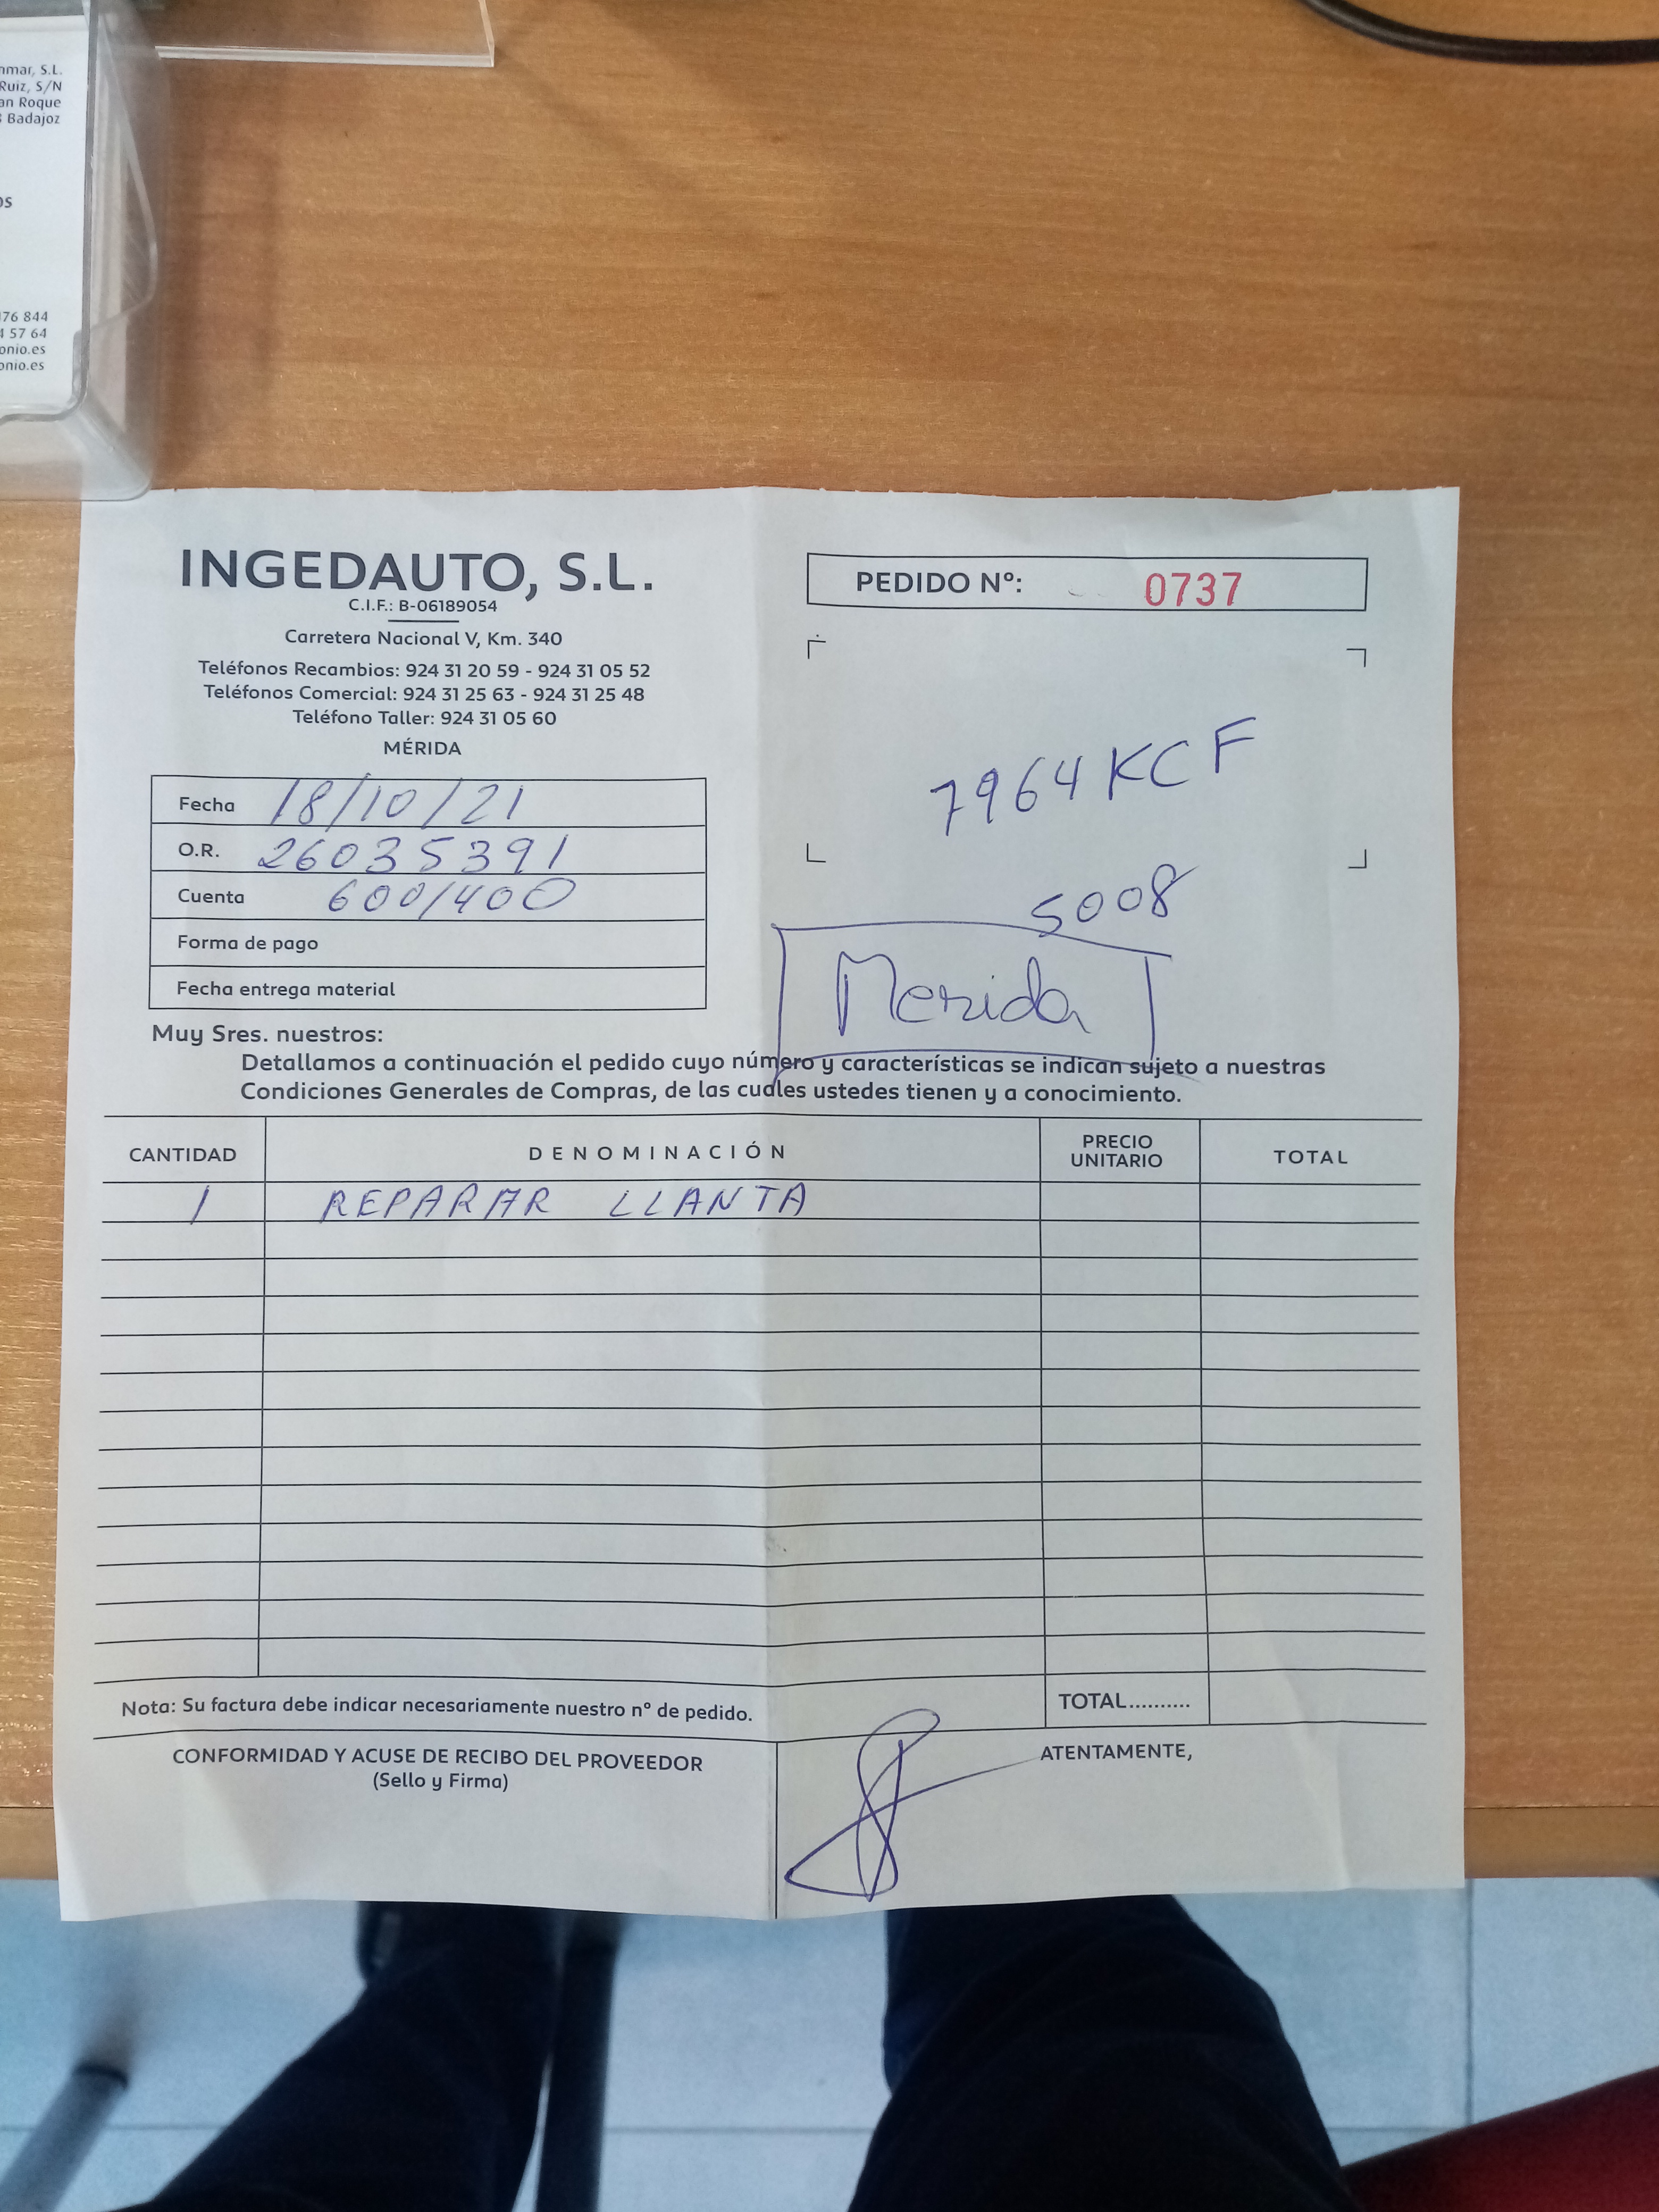 nmar, S.L.
Ruiz, S/N
an Roque
Badajoz
os
176 844
57 64
onio.es
onio.es
INGEDAUTO, S.L.
C.I.F.: B-06189054
Carretera Nacional V, Km. 340
Teléfonos Recambios: 924 31 20 59 - 924 31 05 52
Teléfonos Comercial: 924 31 25 63 - 924 31 25 48
Teléfono Taller: 924 31 05 60
MÉRIDA
PEDIDO Nº: 0737
7964KCF
5008
Merida
Fecha 18/10/21
O.R. 26035391
Cuenta 600/400
Forma de pago
Fecha entrega material
Muy Sres. nuestros:
Detallamos a continuación el pedido cuyo número y características se indican sujeto a nuestras
Condiciones Generales de Compras, de las cuales ustedes tienen y a conocimiento.
CANTIDAD DENOMINACIÓN PRECIO UNITARIO TOTAL
1 REPARAR LLANTA
Nota: Su factura debe indicar necesariamente nuestro nº de pedido.
TOTAL..........
CONFORMIDAD Y ACUSE DE RECIBO DEL PROVEEDOR
(Sello y Firma)
ATENTAMENTE,